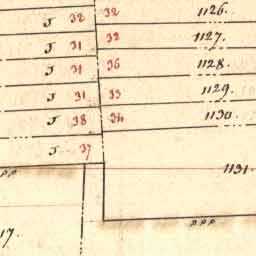 J 32 32 1126.
J 31 32 1127.
J 31 36 1128.
J 31 33 1129.
J 38 34 1130.
J 37 1131.
PPP
PPP
17.